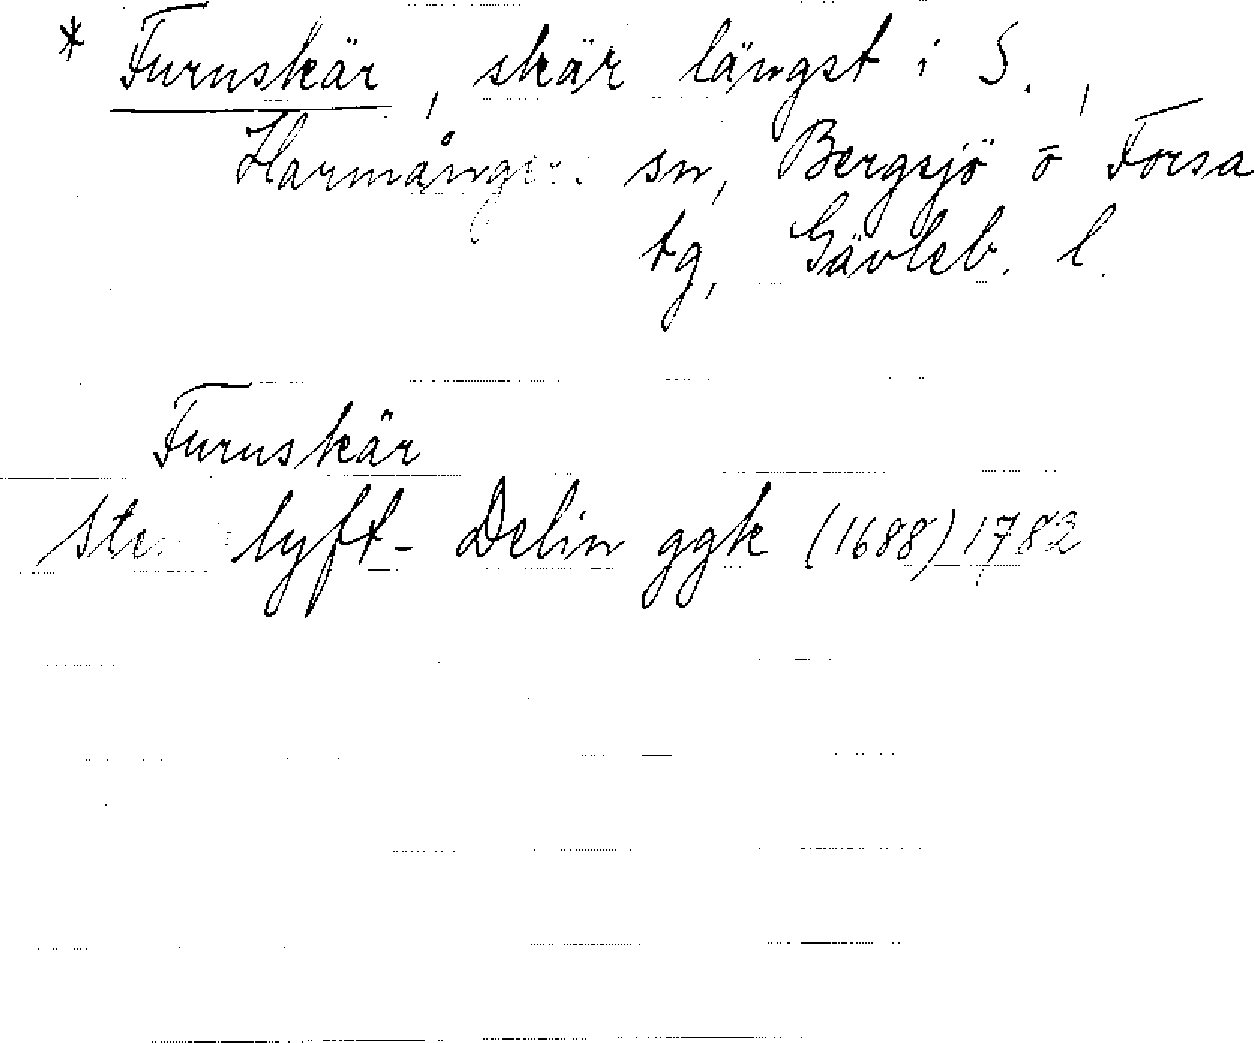 * Furuskär, skär längst i S.,
Harmångers sn, Bergsjö o Forsa
tg, Gävleb. l.
Furuskär
lyft- Delin ggk (1688) 1782